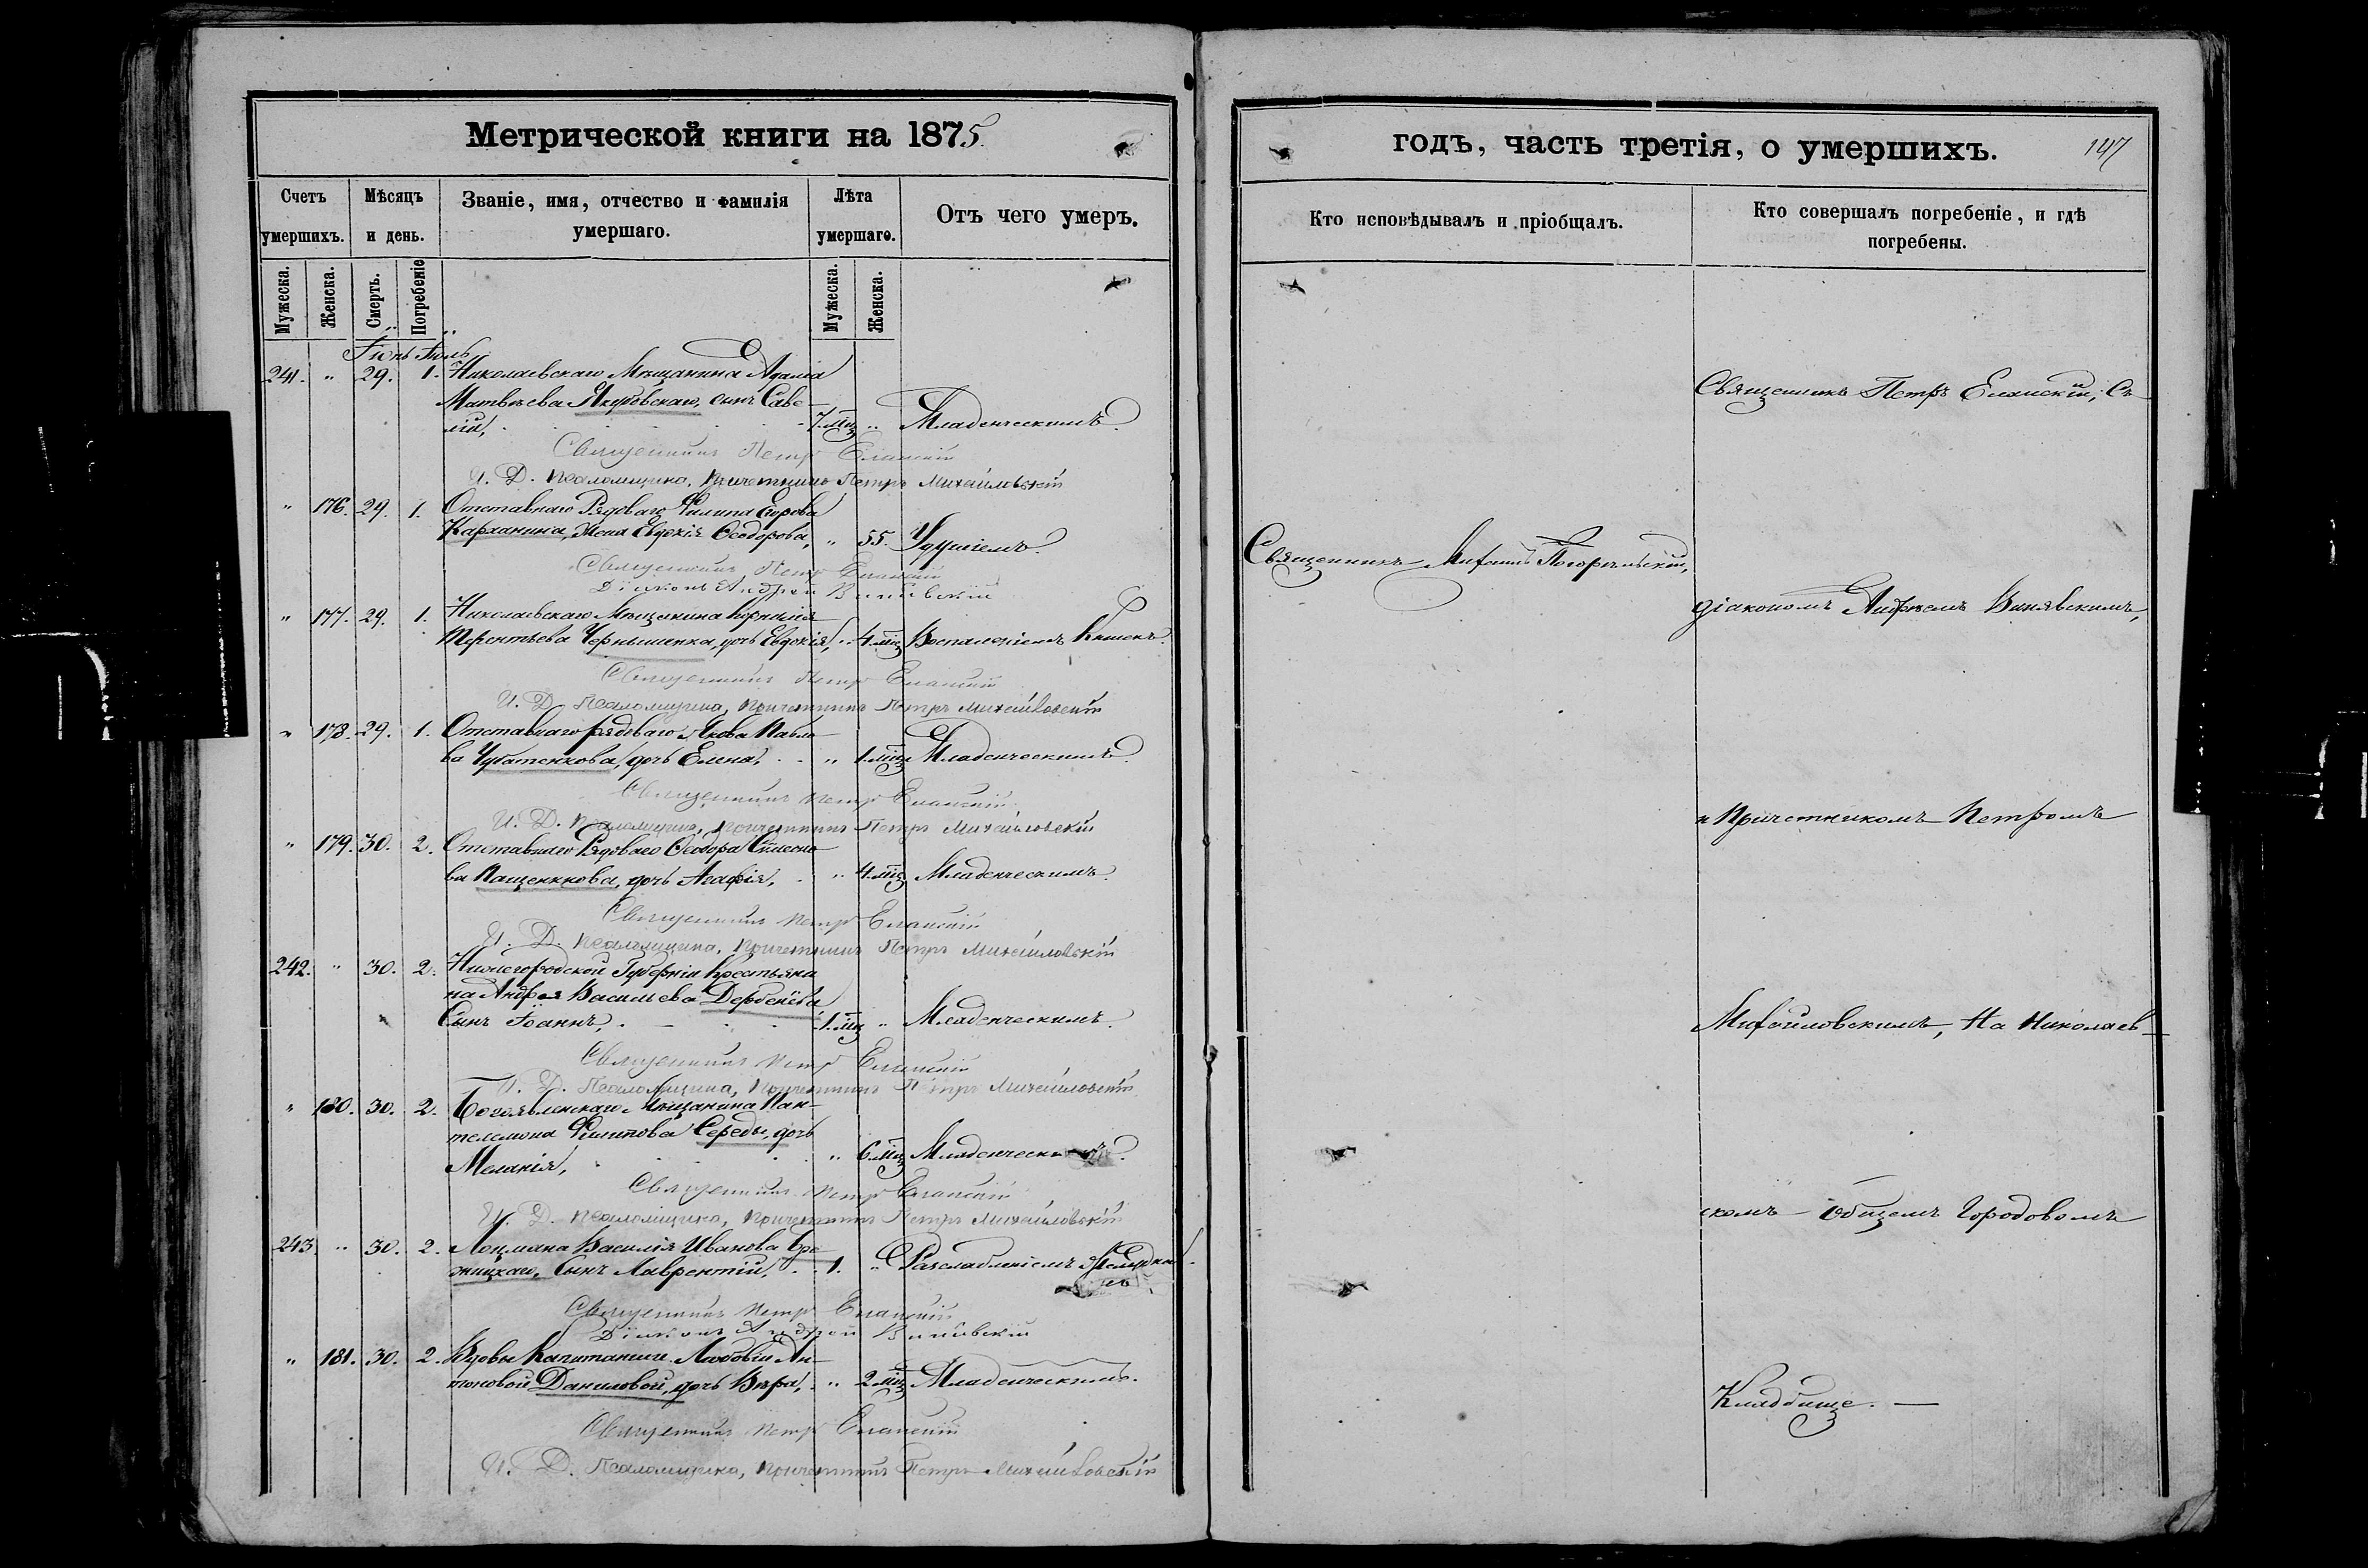 Метрической книги на 1875.
Счетъ умершихъ.
Мѣсяцъ и день.
Званіе, имя, отчество и фамилія умершаго.
Лѣта умершаго.
Отъ чего умеръ.
Мужеска.
Женска.
Смерть.
Погребеніе
Мужеска.
Женска.
Іюнь Іюль
241. " 29. 1. Николаевскаго Мѣщанина Адама
Матвѣева Якубовскаго, сынъ Саве-
лій, 7. мц " Младенческимъ.
Священникъ Петръ Еланскій
И. Д. Псаломщика, Причетникъ Петръ Михайловскій
" 176. 29. 1. Отставнаго Рядоваго Филипа Егорова
Карханина, жена Евдокія Ѳеодорова, " 55. Удушіемъ.
Священникъ Петръ Еланскій
Діаконъ Андрей Винявскій
" 177. 29. 1. Николаевскаго Мѣщанина Корнилія
Терентьева Чернышенка, дочь Евдокія, " 4. мц Воспаленіемъ Кишекъ.
Священникъ Петръ Еланскій
И. Д. Псаломщика, Причетникъ Петръ Михайловскій
" 178. 29. 1. Отставнаго рядоваго Якова Павло-
ва Чубатенкова, дочь Елена, " 1. мц Младенческимъ.
Священникъ Петръ Еланскій
И. Д. Псаломщика, Причетникъ Петръ Михайловскій
" 179. 30. 2. Отставнаго Рядоваго Ѳеодора Симено-
ва Пащенкова, дочь Агафія, " 4. мц Младенческимъ.
Священникъ Петръ Еланскій
И. Д. Псаломщика, Причетникъ Петръ Михайловскій
242. " 30. 2. Нижегородской Губерніи Крестьяни-
на Андрея Васильева Дербенёва
Сынъ Іоаннъ, 1. мц " Младенческимъ.
Священникъ Петръ Еланскій
И. Д. Псаломщика, Причетникъ Петръ Михайловскій
" 180. 30. 2. Богоявленскаго Мѣщанина Пан-
телемона Филипова Середы, дочь
Меланія, " 6. мц Младенческимъ.
Священникъ Петръ Еланскій
И. Д. Псаломщика, Причетникъ Петръ Михайловскій
243. " 30. 2. Лоцмана Василія Иванова
Сынъ Лаврентій, 1. " Разслаблѣніемъ
Священникъ Петръ Еланскій
Діаконъ Андрей Винявскій
" 181. 30. 2. Вдовы Капитанши Любови Ан-
тоновой Даниловой, дочь Вѣра, " 2 мц Младенческимъ.
Священникъ Петръ Еланскій
И. Д. Псаломщика, Причетникъ Петръ Михайловскій
годъ, часть третія, о умершихъ.
147
Кто исповѣдывалъ и пріобщалъ.
Кто совершалъ погребеніе, и гдѣ погребены.
Священникъ Петръ Еланскій, Съ
Священникъ Михаилъ Погорѣльскій,
діакономъ Андреемъ Винявскимъ,
и Причетникомъ Петромъ
Михайловскимъ, На Николаев-
скомъ Общемъ Городовомъ
Кладбище.